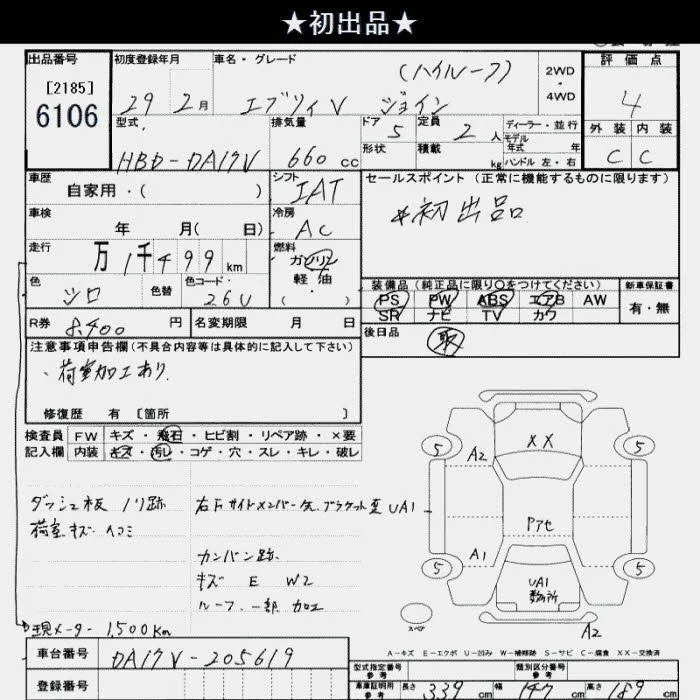 ★初出品★
出品番号
[2185]
6106
初度登録年月
29 2月
車名・グレード
(ハイルーフ)
エブリィV ジョイン
2WD
・
4WD
評価点
4
外装 内装
C C
型式
HBD-DA17V
排気量
660 cc
ドア 5
形状
定員 2 人
積載 kg
ディーラー・並行
モデル
年式 年
ハンドル 左・右
車歴
自家用・( )
シフト
IAT
セールスポイント (正常に機能するものに限ります)
*初出品
車検
年 月( 日)
冷房
AC
走行
万 1千499 km
燃料
ガソリン
軽・油
( ・ )
色
シロ
色替
色コード・
26U
装備品(純正品に限り○をつけてください)
新車保証書
PS PW ABS エアB AW
SR ナビ TV カワ
有・無
R券 8,400 円
名変期限 月 日
後日品
取
注意事項申告欄(不具合内容等は具体的に記入して下さい)
・荷室加工あり.
修復歴 有 [箇所 ]
検査員
記入欄
FW キズ・飛石・ヒビ割・リペア跡・×要
内装 キズ・汚レ・コゲ・穴・スレ・キレ・破レ
ダッシュ板 ノリ跡
荷室キズ ヘコミ
右F サイドメンバー先.ブラケット歪 UA1
カンバン跡
キズ E W2
ルーフ.一部 加工
現メーター 1,500Km
5
A2
XX
5
Pアセ
A1
5
UA1
数ヶ所
5
スペア
A2
A-キズ E-エクボ U-凹み W-補修跡 S-サビ C-腐食 XX-交換済
車台番号
DA17V-205619
登録番号
型式指定番号
参考
類別区分番号
参考
車庫証明用
参考
長さ 339 cm
幅 147 cm
高さ 189 cm